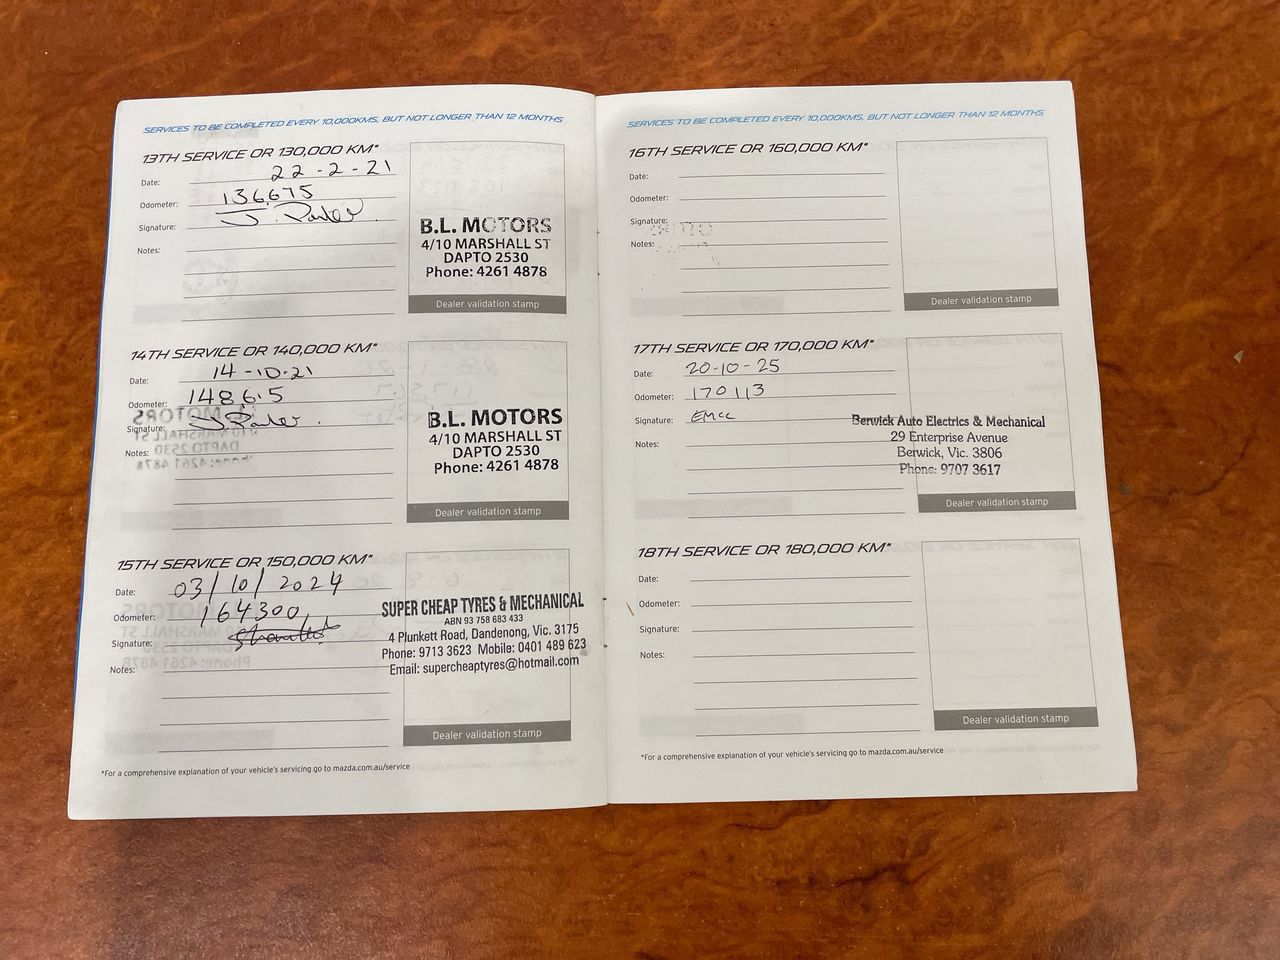 SERVICES TO BE COMPLETED EVERY 10,000KMS, BUT NOT LONGER THAN 12 MONTHS
13TH SERVICE OR 130,000 KM*
Date: 22-2-21
Odometer: 136,675
Signature: J. Parker
Notes:
B.L. MOTORS
4/10 MARSHALL ST
DAPTO 2530
Phone: 4261 4878
Dealer validation stamp
14TH SERVICE OR 140,000 KM*
Date: 14-10-21
Odometer: 148615
Signature: J Parker
Notes:
B.L. MOTORS
4/10 MARSHALL ST
DAPTO 2530
Phone: 4261 4878
Dealer validation stamp
15TH SERVICE OR 150,000 KM*
Date: 03/10/2024
Odometer: 164300
Signature:
Notes:
SUPER CHEAP TYRES & MECHANICAL
ABN 93 758 683 433
4 Plunkett Road, Dandenong, Vic. 3175
Phone: 9713 3623 Mobile: 0401 489 623
Email: supercheaptyres@hotmail.com
Dealer validation stamp
*For a comprehensive explanation of your vehicle's servicing go to mazda.com.au/service
SERVICES TO BE COMPLETED EVERY 10,000KMS, BUT NOT LONGER THAN 12 MONTHS
16TH SERVICE OR 160,000 KM*
Date:
Odometer:
Signature:
Notes:
Dealer validation stamp
17TH SERVICE OR 170,000 KM*
Date: 20-10-25
Odometer: 170113
Signature: EMcc
Notes:
Berwick Auto Electrics & Mechanical
29 Enterprise Avenue
Berwick, Vic. 3806
Phone: 9707 3617
Dealer validation stamp
18TH SERVICE OR 180,000 KM*
Date:
Odometer:
Signature:
Notes:
Dealer validation stamp
*For a comprehensive explanation of your vehicle's servicing go to mazda.com.au/service